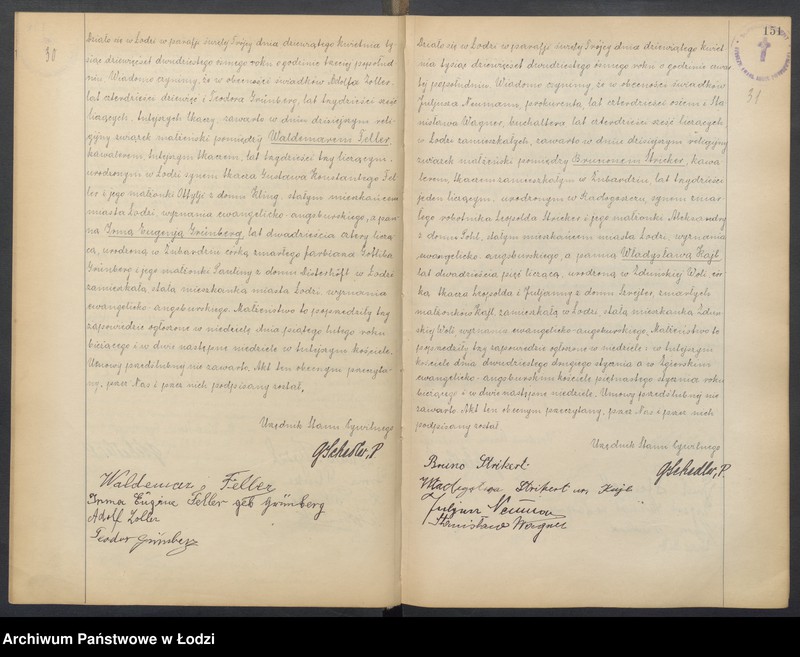 30
Działo się w Łodzi w parafji świętej Trójcy dnia dziewiątego kwietnia ty-
siąc dziewięćset dwudziestego ósmego roku o godzinie trzeciej popołud-
niu. Wiadomo czynimy, że w obecności świadków Adolfa Zoller,
lat czterdzieści dziewięć i Teodora Grünberg, lat trzydzieści sześć
liczących, tutejszych tkaczy zawarto w dniu dzisiejszym reli-
gijny związek małżeński pomiędzy Waldemarem Feller,
kawalerem, tutejszym tkaczem, lat trzydzieści trzy liczącym,
urodzonym w Łodzi synem tkacza Gustawa Konstantego Fel-
ler i jego małżonki Ottylji z domu Kling, stałym mieszkańcem
miasta Łodzi, wyznania ewangelicko-augsburskiego, a pan-
ną Irmą Eugenją Grünberg, lat dwadzieścia cztery liczą-
cą, urodzoną w Żubardziu córką zmarłego farbiarza Gottliba
Grünberg i jego małżonki Pauliny z domu w Łodzi
zamieszkałą, stałą mieszkanką miasta Łodzi, wyznania
ewangelicko-augsburskiego. Małżeństwo to poprzedziły trzy
zapowiedzie ogłoszone w niedzielę dnia piątego lutego roku
bieżącego i w dwie następne niedziele w tutejszym kościele.
Umowy przedślubnej nie zawarto. Akt ten obecnym przeczyta-
ny, przez Nas i przez nich podpisany został.
Urzędnik Stanu Cywilnego
G Schedler, P
Waldemar Feller
Irma Eugene Feller geb Grünberg
Adolf Zoller
Teodor Grünberg
151
31
Działo się w Łodzi w parafji świętej Trójcy dnia dziewiątego kwiet-
nia tysiąc dziewięćset dwudziestego ósmego roku o godzinie czwar-
tej popołudniu. Wiadomo czynimy, że w obecności świadków
Juljusza Neumann, prokurenta, lat czterdzieści osiem i Sta-
nisława Wagner, buchaltera lat czterdzieści sześć liczących
w Łodzi zamieszkałych, zawarto w dniu dzisiejszym religijny
związek małżeński pomiędzy Brunonem Stricker, kawa-
lerem, tkaczem zamieszkałym w Żubardziu, lat trzydzieści
jeden liczącym, urodzonym w Radogoszczu, synem zmar-
łego robotnika Leopolda Stricker i jego małżonki Aleksandry
z domu Pohl, stałym mieszkańcem miasta Łodzi, wyznania
ewangelicko-augsburskiego, a panną Władysławą Kajl,
lat dwadzieścia pięć liczącą, urodzoną w Zduńskiej Woli, cór-
ką tkacza Leopolda i Juljanny z domu zmarłych
małżonków Kajl, zamieszkałą w Łodzi, stałą mieszkanką Zduń-
skiej Woli wyznania ewangelicko-augsburskiego. Małżeństwo to
poprzedziły trzy zapowiedzie ogłoszone w niedzielę w tutejszym
kościele dnia dwudziestego drugiego stycznia a w Zgierskim
ewangelicko-augsburskim kościele piętnastego stycznia roku
bieżącego i w dwie następne niedziele. Umowy przedślubnej nie
zawarto. Akt ten obecnym przeczytany, przez Nas i przez nich
podpisany został.
Urzędnik Stanu Cywilnego
G Schedler, P.
Bruno Strikert
Władysława Strikert
Juljusz Neuman
Stanisław Wagner
Archiwum Państwowe w Łodzi